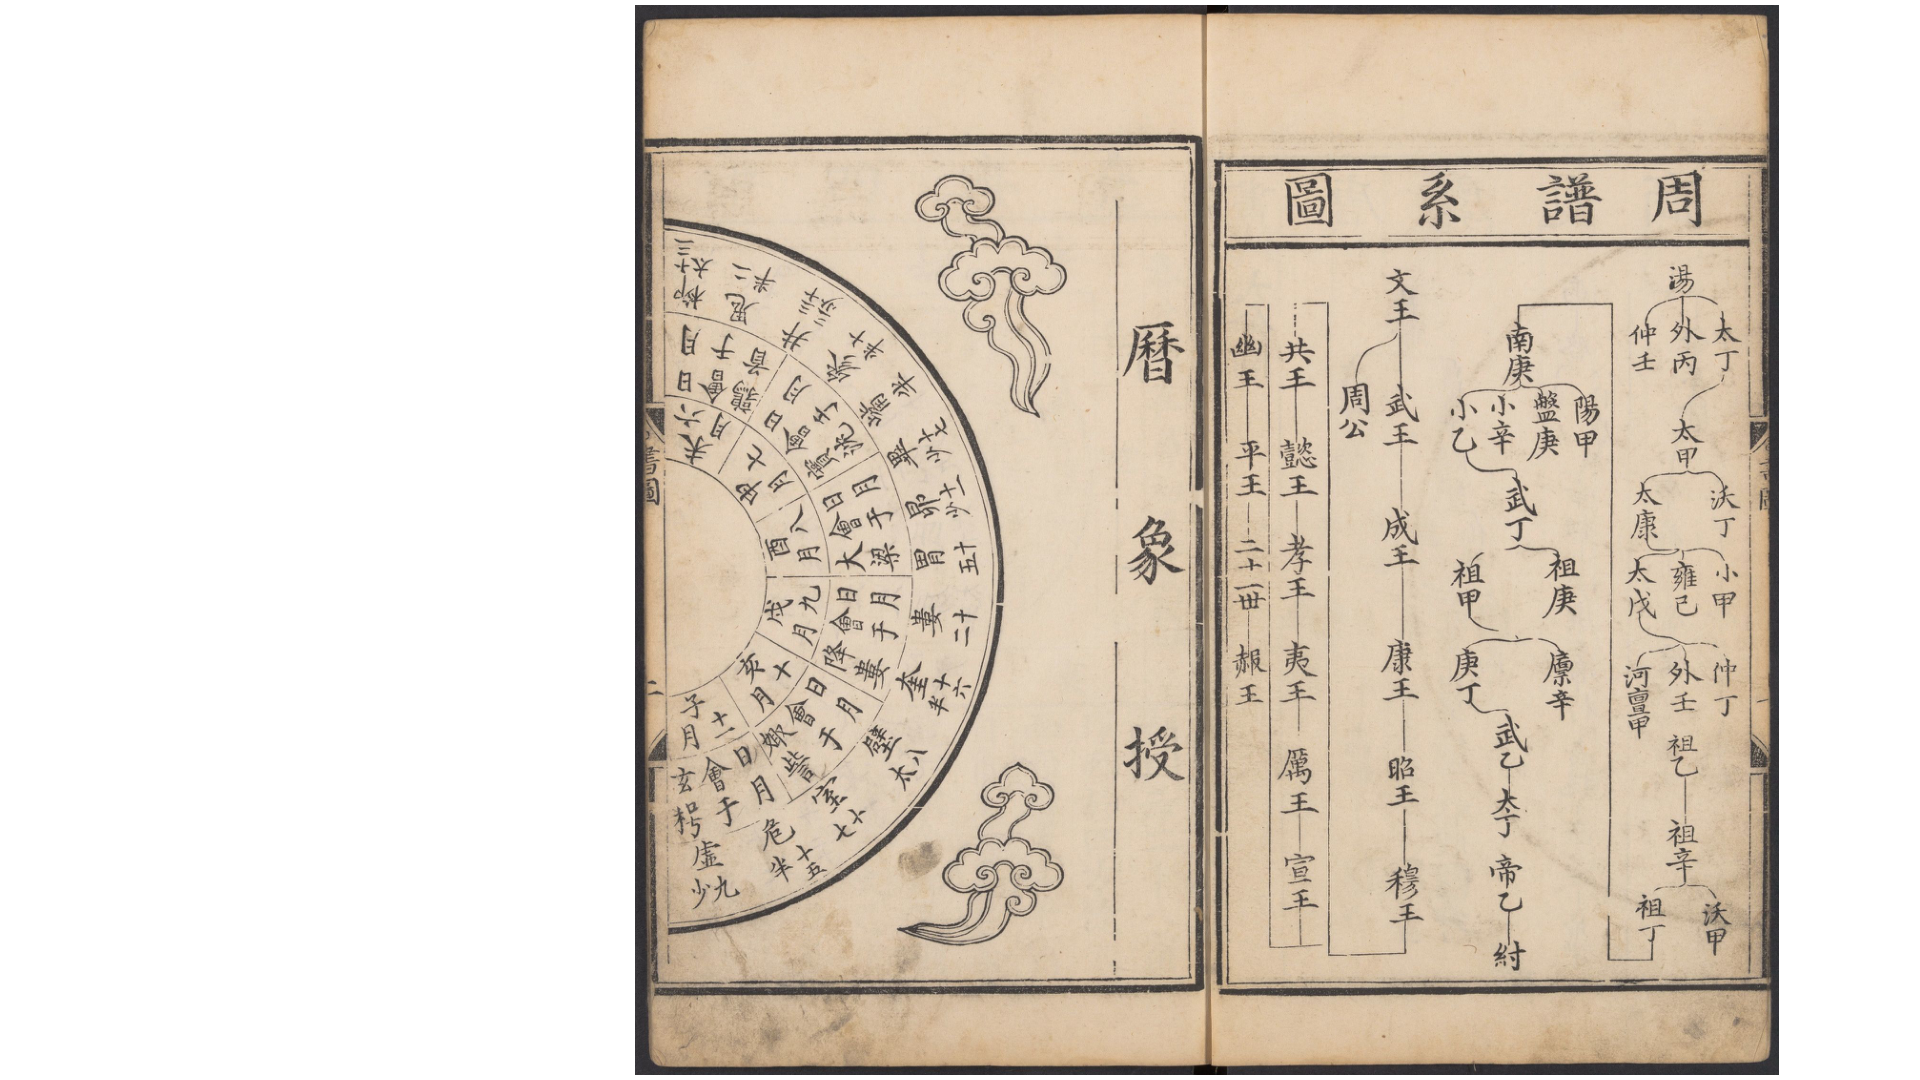 周譜系圖
湯
太丁
外丙
仲壬
太甲
沃丁
太康
小甲
雍己
太戊
仲丁
外壬
河亶甲
祖乙
祖辛
沃甲
祖丁
南庚
陽甲
盤庚
小辛
小乙
武丁
祖庚
祖甲
廩辛
庚丁
武乙
太丁
帝乙
紂
文王
周公
武王
成王
康王
昭王
穆王
共王
懿王
孝王
夷王
厲王
宣王
幽王
平王
二十一世
赧王
曆象授
柳十三太
鬼二半
井三十三少
觜半
畢十七少
昴十一少
胃十五
婁十二
奎十六半
壁八太
室十七
危十五半
虛九少
日月會于鶉首
日月會于實沈
日月會于大梁
日月會于降婁
日月會于娵訾
日月會于玄枵
六月未
七月申
八月酉
九月戌
十月亥
十一月子
書圖
二